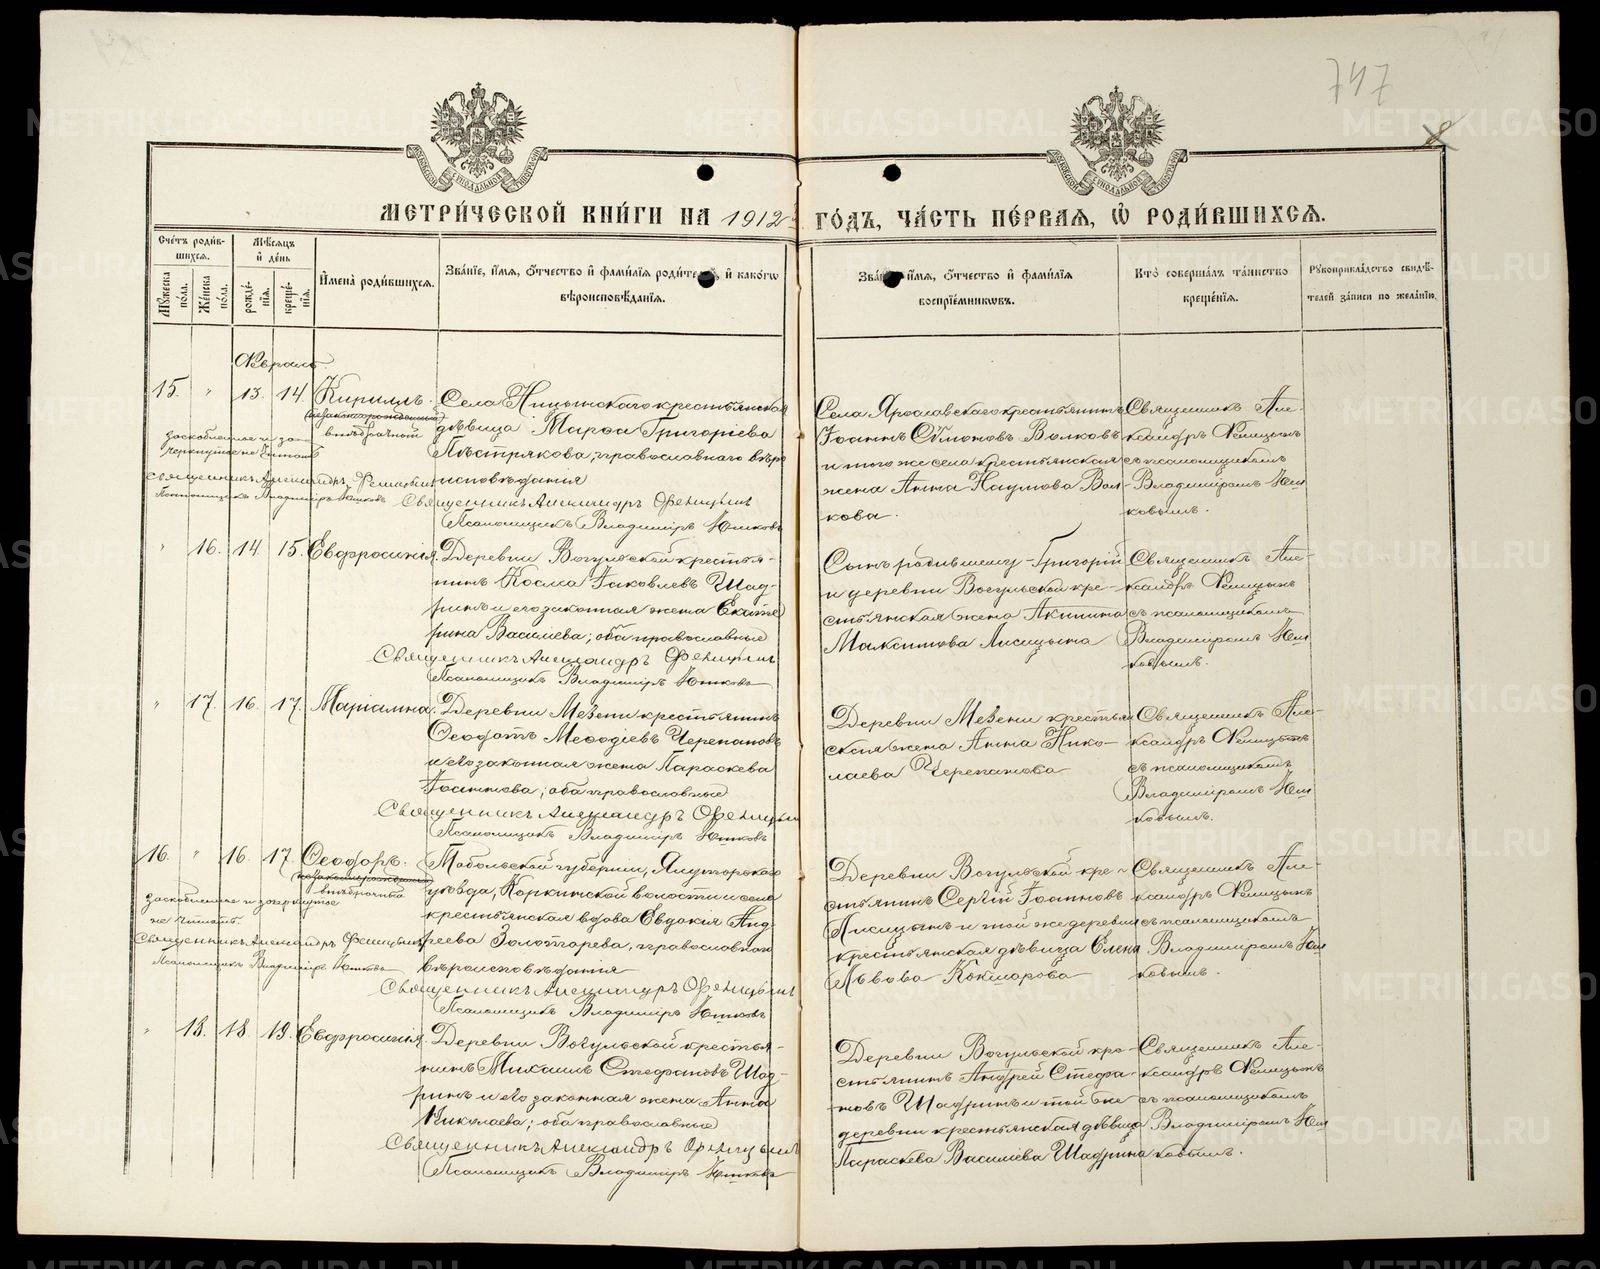 747
8
МЕТРИ́ЧЕСКОЙ КНИ́ГИ НА 1912 ГО́ДЪ, ЧА́СТЬ ПЕ́РВАЯ, Ѡ҆ РОДИ́ВШИХСѦ.
Сче́тъ роди́в-
шихсѧ.
Мꙋ́жеска по́ла.
Же́нска по́ла.
Мѣ́сѧцъ
и҆ де́нь
рожде́-
нїѧ.
креще́-
нїѧ.
И҆мена̀ роди́вшихсѧ.
Зва́нїе, и҆́мѧ, ѻ҆́тчество и҆ фами́лїѧ роди́телей, и҆ како́гѡ
вѣроисповѣ́данїѧ.
Зва́нїе, и҆́мѧ, ѻ҆́тчество и҆ фами́лїѧ
воспрїе́мникѡвъ.
Кто̀ соверша́лъ та́инство
креще́нїѧ.
Рꙋкоприкла́дство свидѣ́-
телей за́писи по жела́нїю.
Февраль
15. " 13. 14. Кириллъ.
незаконнорожденный
внѣбрачный
заскобленное и за-
черкнутое не читать
Священникъ Александръ Феницынъ
Псаломщикъ Владиміръ Юшковъ
Села Ницынскаго крестьянская
дѣвица Марѳа Григоріева
Пѣстрякова, православнаго вѣро
исповѣданія
Священникъ Александръ Феницынъ
Псаломщикъ Владиміръ Юшковъ
Села Ярославскаго крестьянинъ
Іоаннъ Сѵмоновъ Волковъ
и того же села крестьянская
жена Анна Наумова Вол-
кова.
Священникъ Але-
ксандръ Феницынъ
съ псаломщикомъ
Владиміромъ Юш
ковымъ.
" 16. 14 15. Евфросинія.
Деревни Вогульской крестья-
нинъ Косма Іаковлевъ Шад-
ринъ и его законная жена Екате
рина Васильева; оба православные
Священникъ Александръ Феницынъ
Псаломщикъ Владиміръ Юшковъ
Сынъ родильницы Григорій
и деревни Вогульской кре-
стьянская жена Акилина
Максимова Лисицына
Священникъ Але-
ксандръ Феницынъ
съ псаломщикомъ
Владиміромъ Юш
ковымъ.
" 17. 16. 17. Маріамна.
Деревни Мезени крестьянинъ
Ѳеодотъ Меѳодіевъ Черепановъ
и его законная жена Параскева
Іоаннова; оба православные
Священникъ Александръ Феницынъ
Псаломщикъ Владиміръ Юшковъ
Деревни Мезени крестьян
ская жена Анна Нико-
лаева Черепанова
Священникъ Але-
ксандръ Феницынъ
съ псаломщикомъ
Владиміромъ Юш
ковымъ.
16. " 16. 17. Ѳеодоръ.
незаконнорожденный
внѣбрачный
заскобленное и зачеркнутое
не читать.
Священникъ Александръ Феницынъ
Псаломщикъ Владиміръ Юшковъ
Тобольской губерніи, Ялуторскаго
уѣзда, Коркинской волости и села
крестьянская вдова Евдокія Анд-
реева Золотарева, православнаго
вѣроисповѣданія
Священникъ Александръ Феницынъ
Псаломщикъ Владиміръ Юшковъ
Деревни Вогульской кре-
стьянинъ Сергій Іоанновъ
Лисицынъ и той же деревни
крестьянская дѣвица Елена
Львова Кокшарова
Священникъ Але-
ксандръ Феницынъ
съ псаломщикомъ
Владиміромъ Юш
ковымъ.
" 18. 18 19. Евфросинія.
Деревни Вогульской крестья-
нинъ Михаилъ Стефановъ Шад-
ринъ и его законная жена Анна
Николаева; оба православные
Священникъ Александръ Феницынъ
Псаломщикъ Владиміръ Юшковъ
Деревни Вогульской кре-
стьянинъ Андрей Стефа-
новъ Шадринъ и той же
деревни крестьянская дѣвица
Параскева Васильева Шадрина
Священникъ Але-
ксандръ Феницынъ
съ псаломщикомъ
Владиміромъ Юш
ковымъ.
METRIKI.GASO-URAL.RU